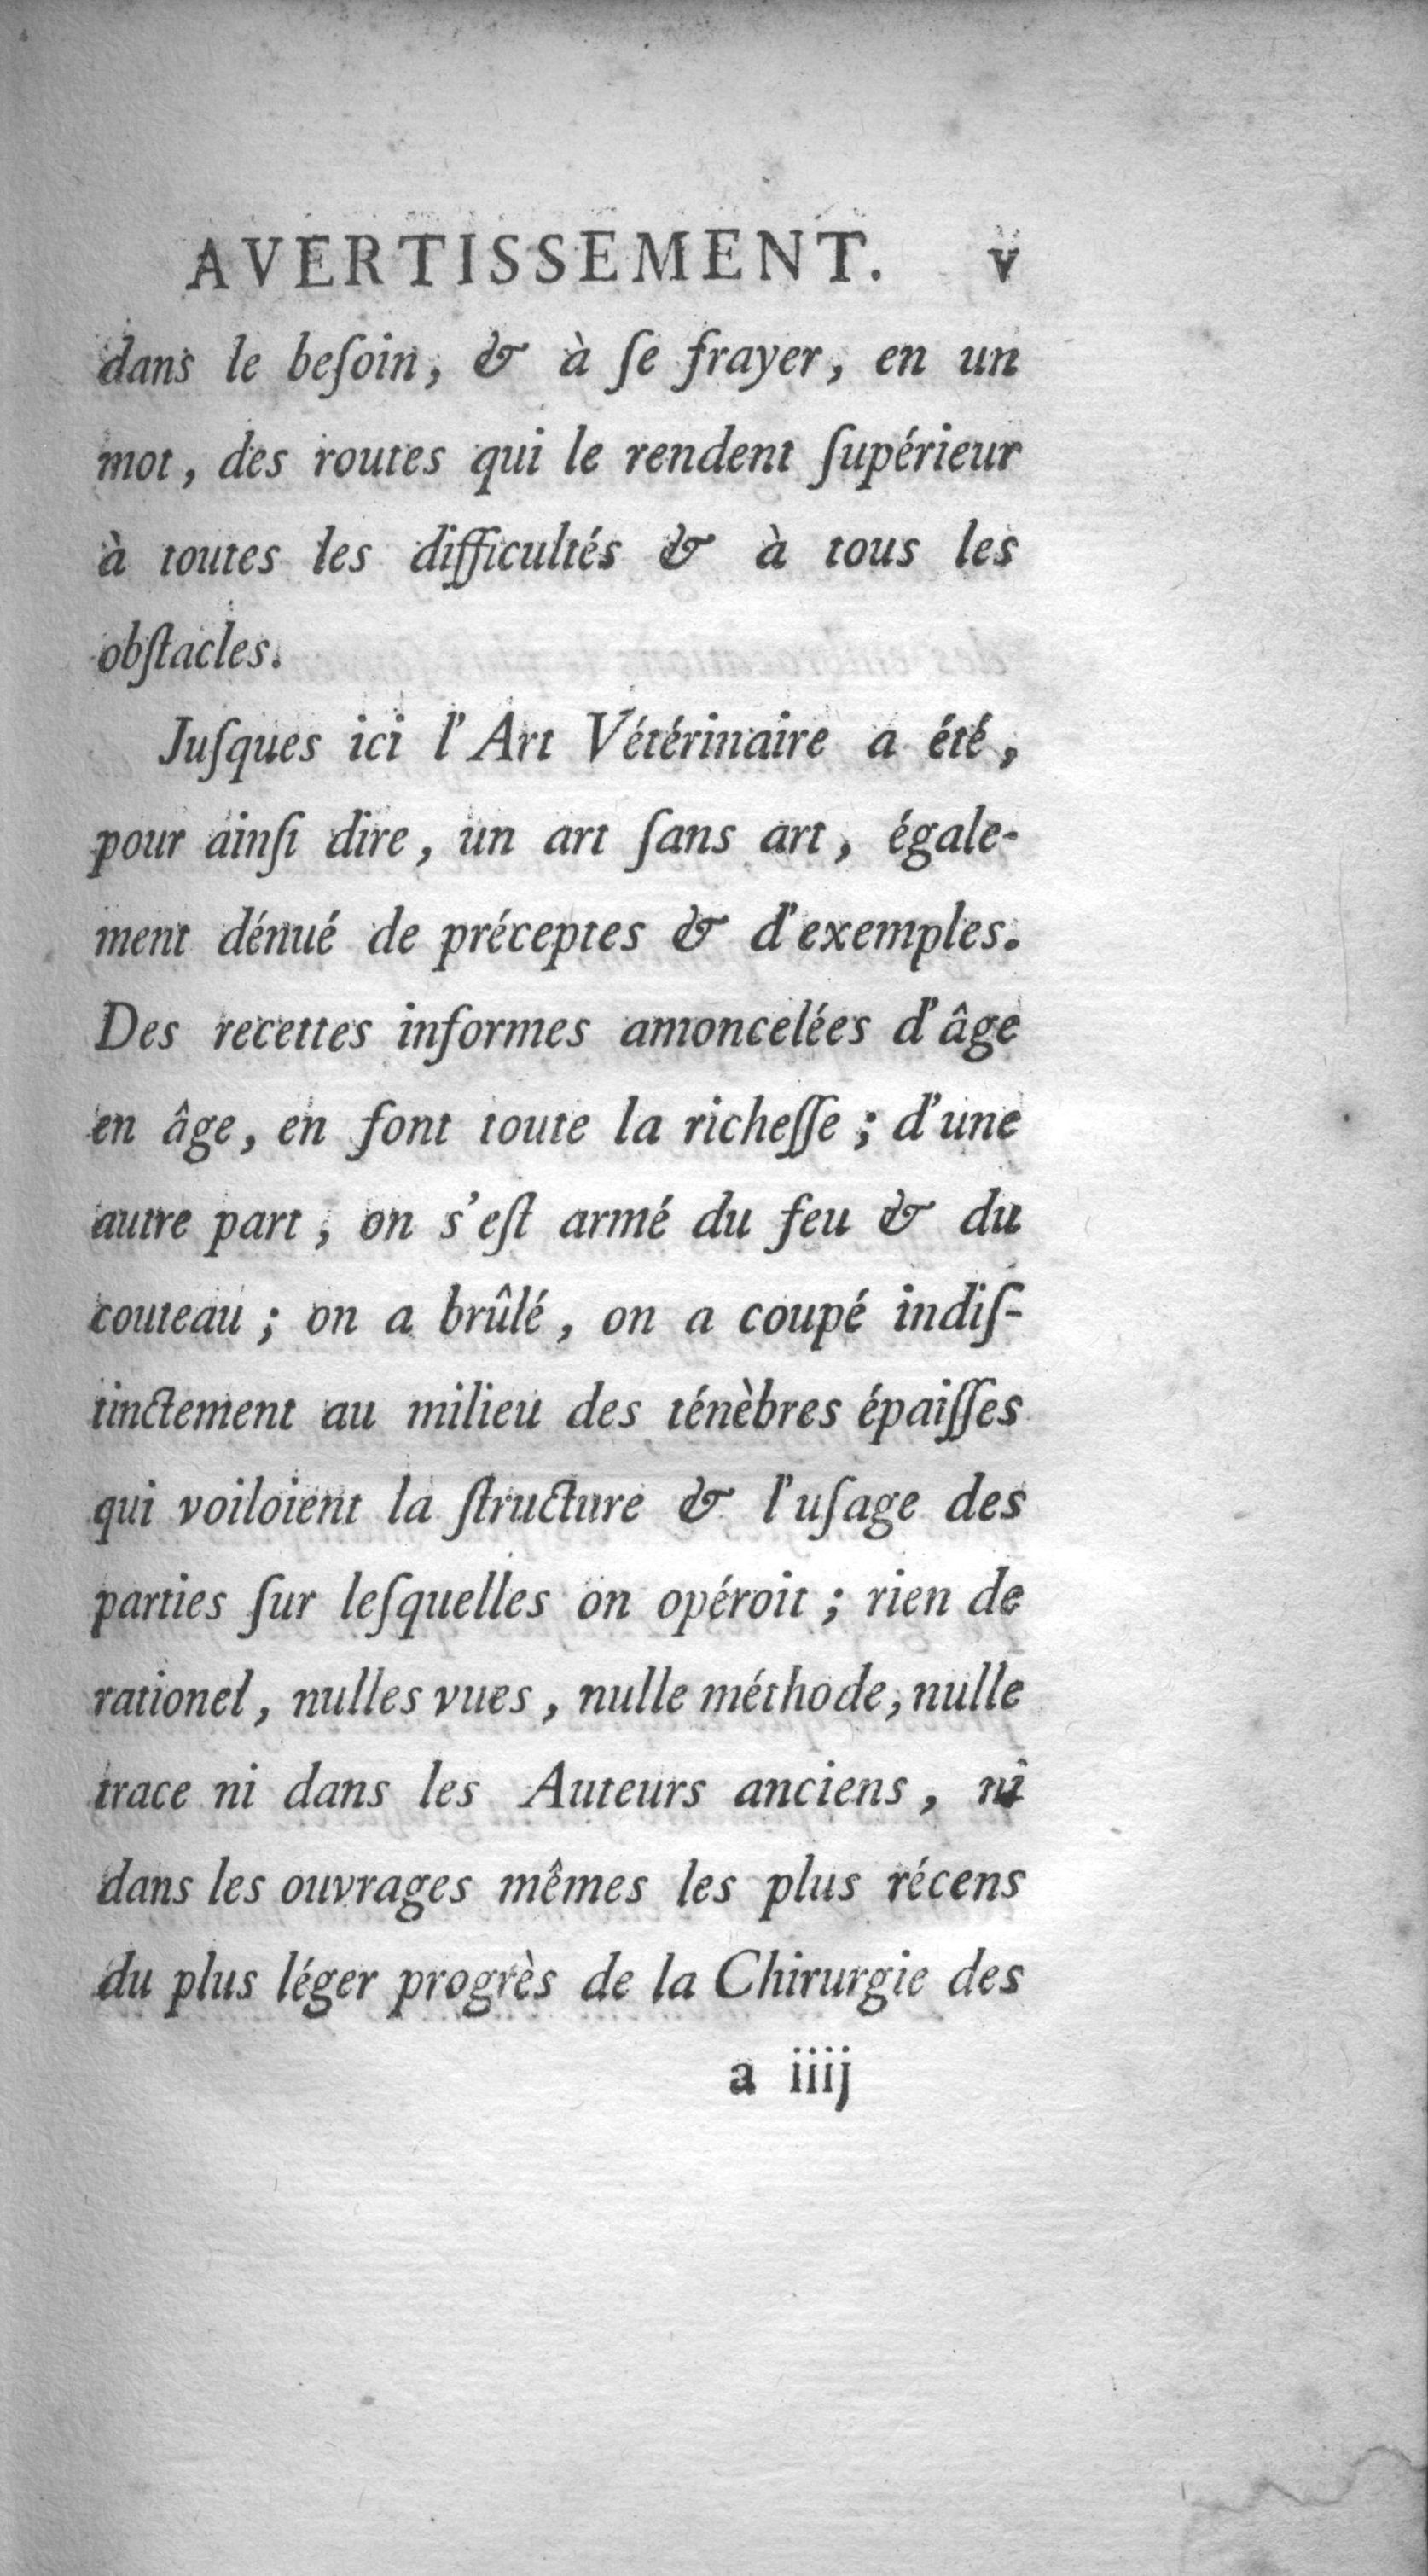 AVERTISSEMENT. v
dans le beſoin, & à ſe frayer, en un
mot, des routes qui le rendent ſupérieur
à toutes les difficultés & à tous les
obſtacles.
Juſques ici l'Art Vétérinaire a été,
pour ainſi dire, un art ſans art, égale-
ment dénué de préceptes & d'exemples.
Des recettes informes amoncelées d'âge
en âge, en font toute la richeſſe ; d'une
autre part, on s'eſt armé du feu & du
couteau ; on a brûlé, on a coupé indiſ-
tinctement au milieu des ténèbres épaiſſes
qui voiloient la ſtructure & l'uſage des
parties ſur leſquelles on opéroit ; rien de
rationel, nulles vues, nulle méthode, nulle
trace ni dans les Auteurs anciens, ni
dans les ouvrages mêmes les plus récens
du plus léger progrès de la Chirurgie des
a iiij